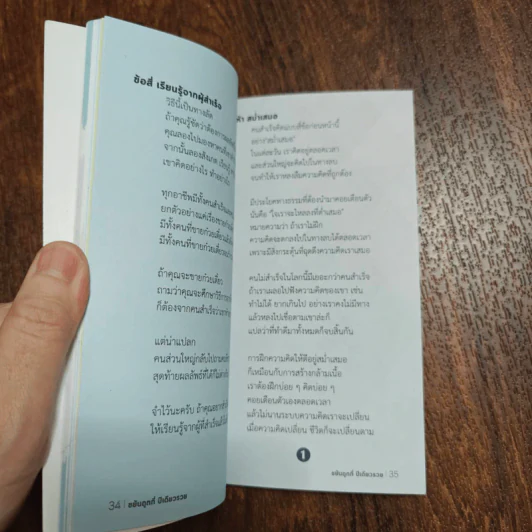 ข้อสี่ เรียนรู้จากผู้สำเร็จ
วิธีนี้เป็นทางลัด
ถ้าคุณรู้ชัดว่าต้องการ
คุณลองไปมองหาคน
จากนั้นลองสังเกต เรียนรู้
เขาคิดอย่างไร ทำอย่างไร
ทุกอาชีพมีทั้งคนสำเร็จ
ยกตัวอย่างแค่เรื่องขาย
มีทั้งคนที่ขายก๋วยเตี๋ยวแล้ว
มีทั้งคนที่ขายก๋วยเตี๋ยว
ถ้าคุณจะขายก๋วยเตี๋ยว
ถามว่าคุณจะศึกษาวิธีการ
ก็ต้องจากคนสำเร็จ
แต่น่าแปลก
คนส่วนใหญ่กลับไปถาม
สุดท้ายผลลัพธ์ที่ได้ก็
จำไว้นะครับ ถ้าคุณอยาก
ให้เรียนรู้จากผู้ที่สำเร็จแล้ว
34 | ขยันถูกที่ ปีเดียวรวย
ห้า สม่ำเสมอ
คนสำเร็จคิดแบบที่ชี้มาก่อนหน้านี้
อย่าง"สม่ำเสมอ"
ในแต่ละวัน เราคิดอยู่ตลอดเวลา
และส่วนใหญ่จะคิดไปในทางลบ
จนทำให้เราหลงลืมความคิดที่ถูกต้อง
มีประโยคทางธรรมที่ต้องนำมาคอยเตือนตัว
นั่นคือ "ใจเราจะไหลลงที่ต่ำเสมอ"
หมายความว่า ถ้าเราไม่ฝึก
ความคิดจะตกลงไปในทางลบได้ตลอดเวลา
เพราะมีสิ่งกระตุ้นที่ฉุดดึงความคิดเราเสมอ
คนไม่สำเร็จในโลกนี้มีเยอะกว่าคนสำเร็จ
ถ้าเราเผลอไปฟังความคิดของเขา เช่น
ทำไม่ได้ ยากเกินไป อย่างเราคงไม่มีทาง
แล้วหลงไปเชื่อตามเขาล่ะก็
แปลว่าที่ทำดีมาทั้งหมดก็จบสิ้นกัน
การฝึกความคิดให้ดีอยู่สม่ำเสมอ
ก็เหมือนกับการสร้างกล้ามเนื้อ
เราต้องฝึกบ่อย ๆ คิดบ่อย ๆ
คอยเตือนตัวเองตลอดเวลา
แล้วไม่นานระบบความคิดเราจะเปลี่ยน
เมื่อความคิดเปลี่ยน ชีวิตก็จะเปลี่ยนตาม
1
ขยันถูกที่ ปีเดียวรวย | 35